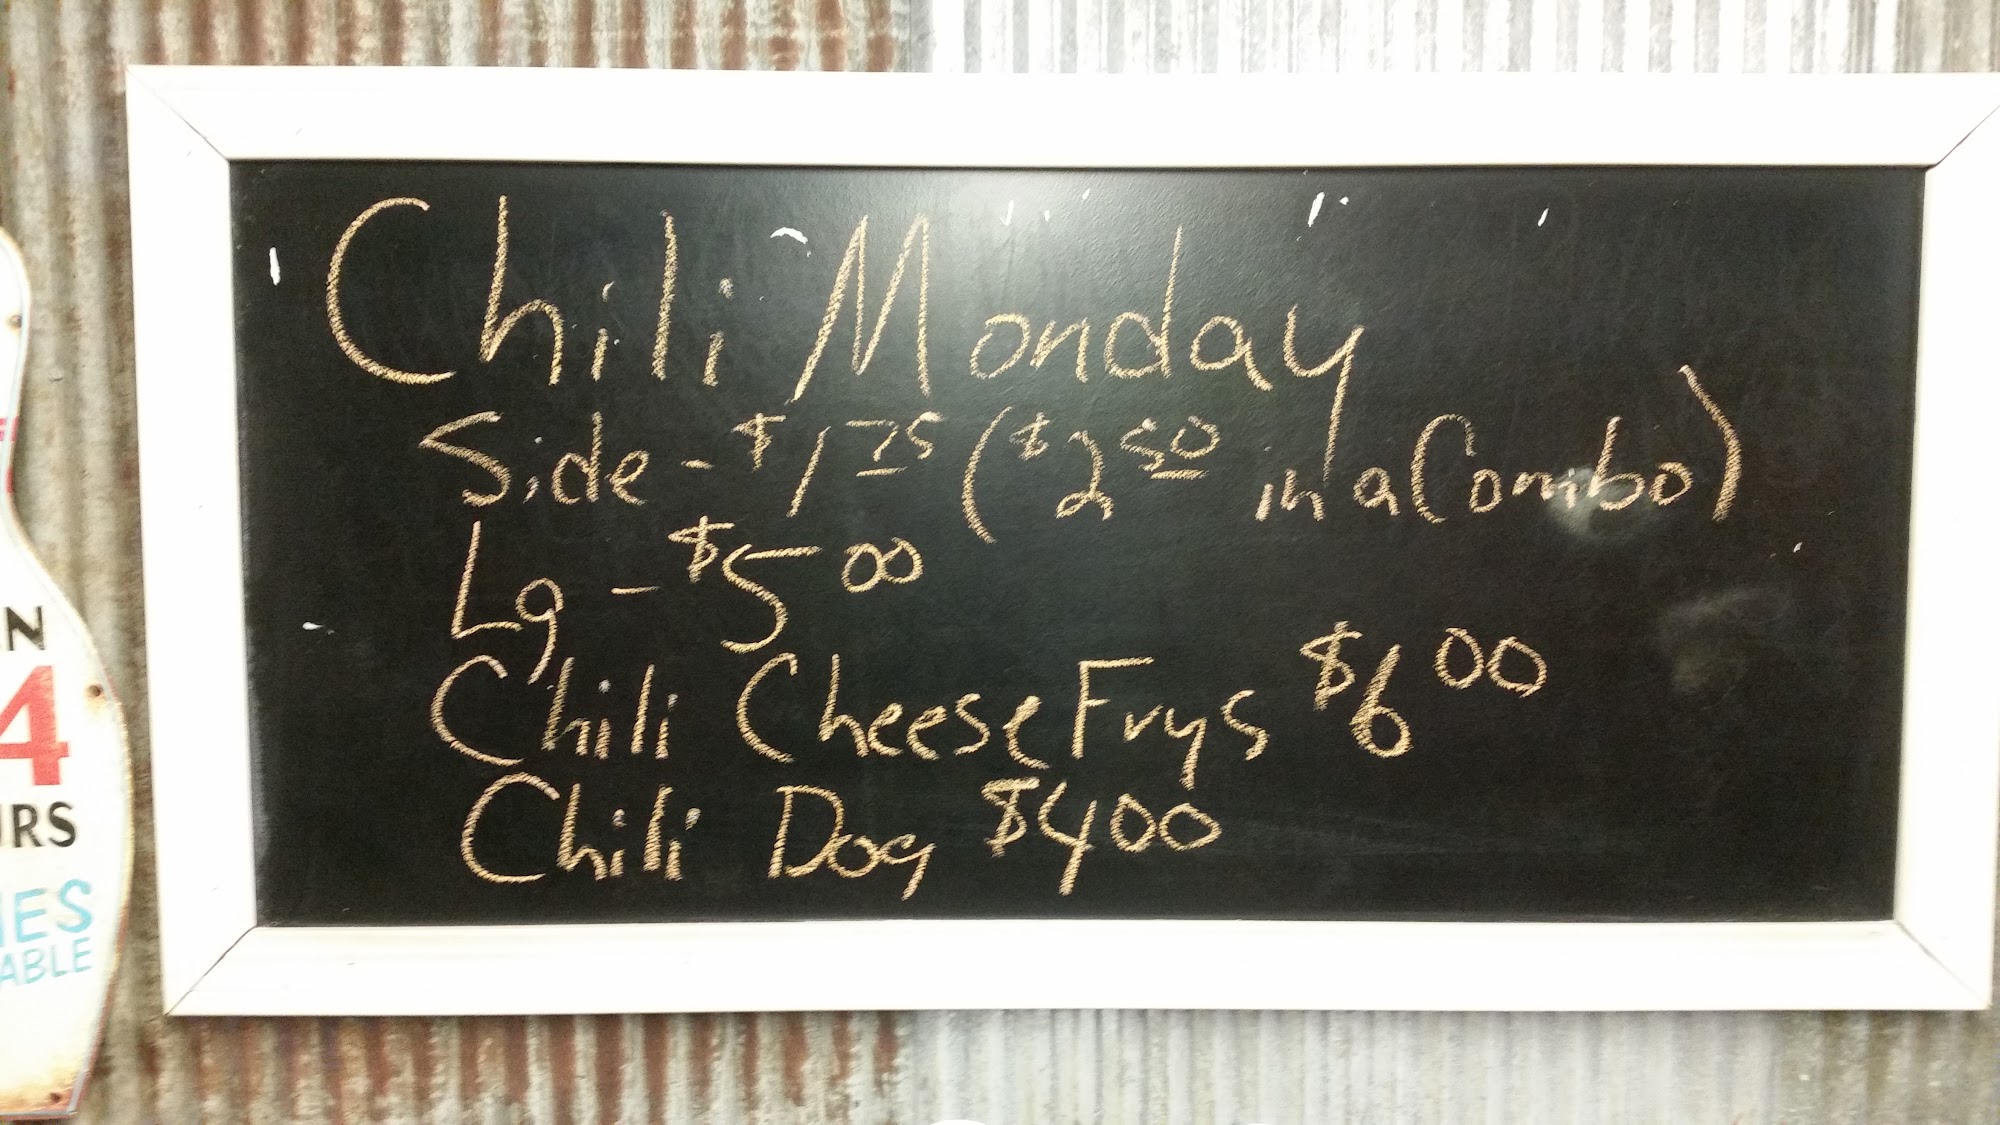 Chili Monday
Side - $1 75 ($2 50 in a Combo)
Lg - $5 00
Chili Cheese Frys $6 00
Chili Dog $4 00
N
4
URS
IES
ABLE